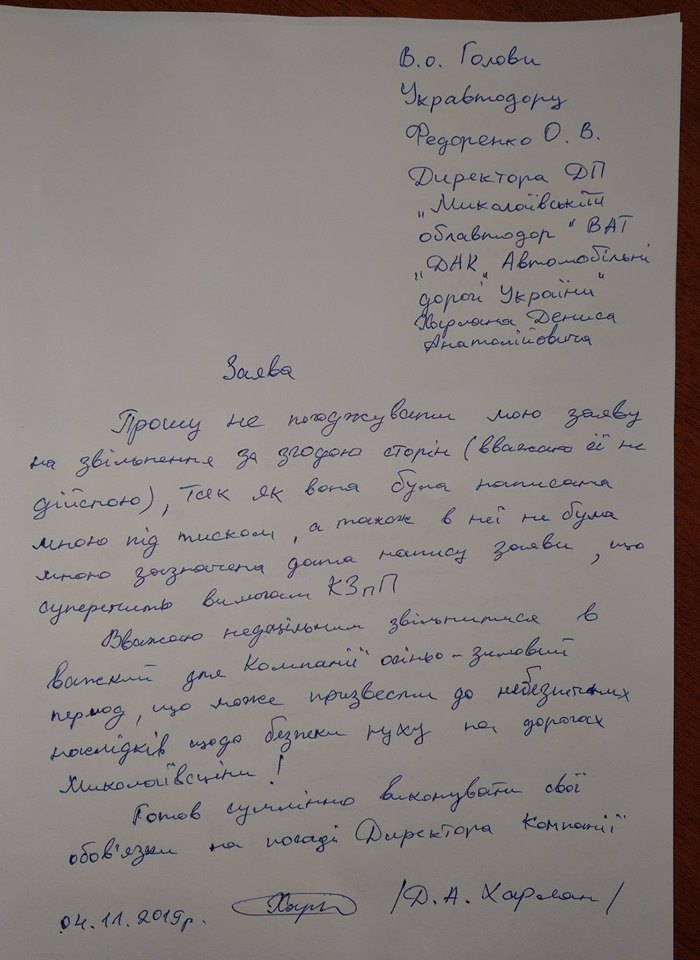 В.о. Голови
Укравтодору
Федоренко О. В.
Директора ДП
„Миколаївський
облавтодор" ВАТ
„ДАК „Автомобільні
дороги України"
Харлана Дениса
Анатолійовича
Заява
Прошу не погоджувати мою заяву
на звільнення за згодою сторін (вважаю її не
дійсною), так як вона була написана
мною під тиском, а також в неї не була
мною зазначена дата напису заяви, що
суперечить вимогам КЗпП
Вважаю недоцільним звільнитися в
важкий для Компанії осіньо-зимовий
період, що може призвести до небезпечних
наслідків щодо безпеки руху на дорогах
Миколаївщини!
Готов сумлінно виконувати свої
обов'язки на посаді Директора Компанії
04.11.2019р. /Д.А. Харлан/